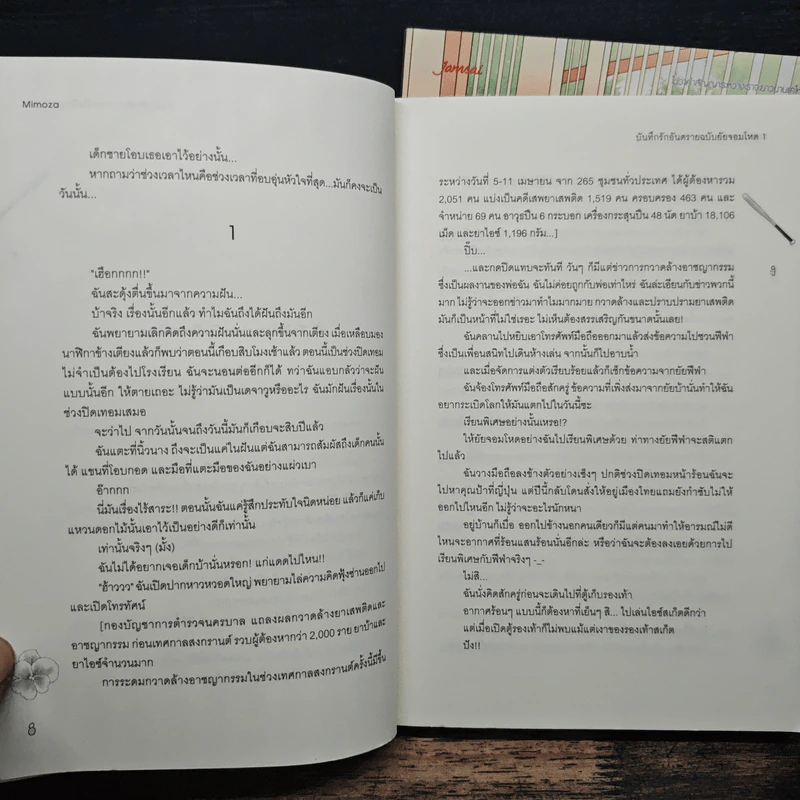 Mimoza
เด็กชายโอบเธอเอาไว้อย่างนั้น...
หากถามว่าช่วงเวลาไหนคือช่วงเวลาที่อบอุ่นหัวใจที่สุด...มันก็คงจะเป็น
วันนั้น...
1
"เฮือกกกก!!"
ฉันสะดุ้งตื่นขึ้นมาจากความฝัน...
บ้าจริง เรื่องนั้นอีกแล้ว ทำไมฉันถึงได้ฝันถึงมันอีก
ฉันพยายามเลิกคิดถึงความฝันนั่นและลุกขึ้นจากเตียง เมื่อเหลือบมอง
นาฬิกาข้างเตียงแล้วก็พบว่าตอนนี้เกือบสิบโมงเช้าแล้ว ตอนนี้เป็นช่วงปิดเทอม
ไม่จำเป็นต้องไปโรงเรียน ฉันจะนอนต่ออีกก็ได้ ทว่าฉันแอบกลัวว่าจะฝัน
แบบนั้นอีก ให้ตายเถอะ ไม่รู้ว่ามันเป็นเดจาวูหรืออะไร ฉันมักฝันเรื่องนั้นใน
ช่วงปิดเทอมเสมอ
จะว่าไป จากวันนั้นจนถึงวันนี้มันก็เกือบจะสิบปีแล้ว
ฉันแตะที่นิ้วนาง ถึงจะเป็นแค่ในฝันแต่ฉันสามารถสัมผัสถึงเด็กคนนั้น
ได้ แขนที่โอบกอด และมือที่แตะมือของฉันอย่างแผ่วเบา
อ๊ากกก
นี่มันเรื่องไร้สาระ!! ตอนนั้นฉันแค่รู้สึกประทับใจนิดหน่อย แล้วก็แค่เก็บ
แหวนดอกไม้นั้นเอาไว้เป็นอย่างดีก็เท่านั้น
เท่านั้นจริงๆ (มั้ง)
ฉันไม่ได้อยากเจอเด็กบ้านั่นหรอก! แก่แดดไปไหน!!
"ฮ้าววว" ฉันเปิดปากหาวหวอดใหญ่ พยายามไล่ความคิดฟุ้งซ่านออกไป
และเปิดโทรทัศน์
[กองบัญชาการตำรวจนครบาล แถลงผลกวาดล้างยาเสพติดและ
อาชญากรรม ก่อนเทศกาลสงกรานต์ รวบผู้ต้องหากว่า 2,000 ราย ยาบ้าและ
ยาไอซ์จำนวนมาก
การระดมกวาดล้างอาชญากรรมในช่วงเทศกาลสงกรานต์ครั้งนี้มีขึ้น
8
Jamsai
บันทึกรักอันตรายฉบับยัยจอมโหด 1
ระหว่างวันที่ 5-11 เมษายน จาก 265 ชุมชนทั่วประเทศ ได้ผู้ต้องหารวม
2,051 คน แบ่งเป็นคดีเสพยาเสพติด 1,519 คน ครอบครอง 463 คน และ
จำหน่าย 69 คน อาวุธปืน 6 กระบอก เครื่องกระสุนปืน 48 นัด ยาบ้า 18,106
เม็ด และยาไอซ์ 1,196 กรัม...]
ปิ๊บ...
...และกดปิดแทบจะทันที วันๆ ก็มีแต่ข่าวการกวาดล้างอาชญากรรม
ซึ่งเป็นผลงานของพ่อฉัน ฉันไม่ค่อยถูกกับพ่อเท่าไหร่ ฉันล่ะเอียนกับข่าวพวกนี้
มาก ไม่รู้ว่าจะออกข่าวมาทำไมมากมาย กวาดล้างและปราบปรามยาเสพติด
มันก็เป็นหน้าที่ไม่ใช่เรอะ ไม่เห็นต้องสรรเสริญกันขนาดนั้นเลย!
ฉันคลานไปหยิบเอาโทรศัพท์มือถือออกมาแล้วส่งข้อความไปชวนฟีฟ่า
ซึ่งเป็นเพื่อนสนิทไปเดินห้างเล่น จากนั้นก็ไปอาบน้ำ
และเมื่อจัดการแต่งตัวเรียบร้อยแล้วก็เช็กข้อความจากยัยฟีฟ่า
ฉันจ้องโทรศัพท์มือถือสักครู่ ข้อความที่เพิ่งส่งมาจากยัยบ้านั่นทำให้ฉัน
อยากระเบิดโลกให้มันแตกไปในวันนี้ซะ
เรียนพิเศษอย่างนั้นเหรอ!?
ให้ยัยจอมโหดอย่างฉันไปเรียนพิเศษด้วย ท่าทางยัยฟีฟ่าจะสติแตก
ไปแล้ว
ฉันวางมือถือลงข้างตัวอย่างเซ็งๆ ปกติช่วงปิดเทอมหน้าร้อนฉันจะ
ไปหาคุณป้าที่ญี่ปุ่น แต่ปีนี้กลับโดนสั่งให้อยู่เมืองไทยแถมยังกำชับไม่ให้
ออกไปไหนอีก ไม่รู้ว่าจะอะไรนักหนา
อยู่บ้านก็เบื่อ ออกไปข้างนอกคนเดียวก็มีแต่คนมาทำให้อารมณ์ไม่ดี
ไหนจะอากาศที่ร้อนแสนร้อนนั่นอีกล่ะ หรือว่าฉันจะต้องลงเอยด้วยการไป
เรียนพิเศษกับฟีฟ่าจริงๆ -_-
ไม่สิ...
ฉันนั่งคิดสักครู่ก่อนจะเดินไปที่ตู้เก็บรองเท้า
อากาศร้อนๆ แบบนี้ก็ต้องหาที่เย็นๆ สิ... ไปเล่นไอซ์สเก็ตดีกว่า
แต่เมื่อเปิดตู้รองเท้าก็ไม่พบแม้แต่เงาของรองเท้าสเก็ต
ปัง!!
9